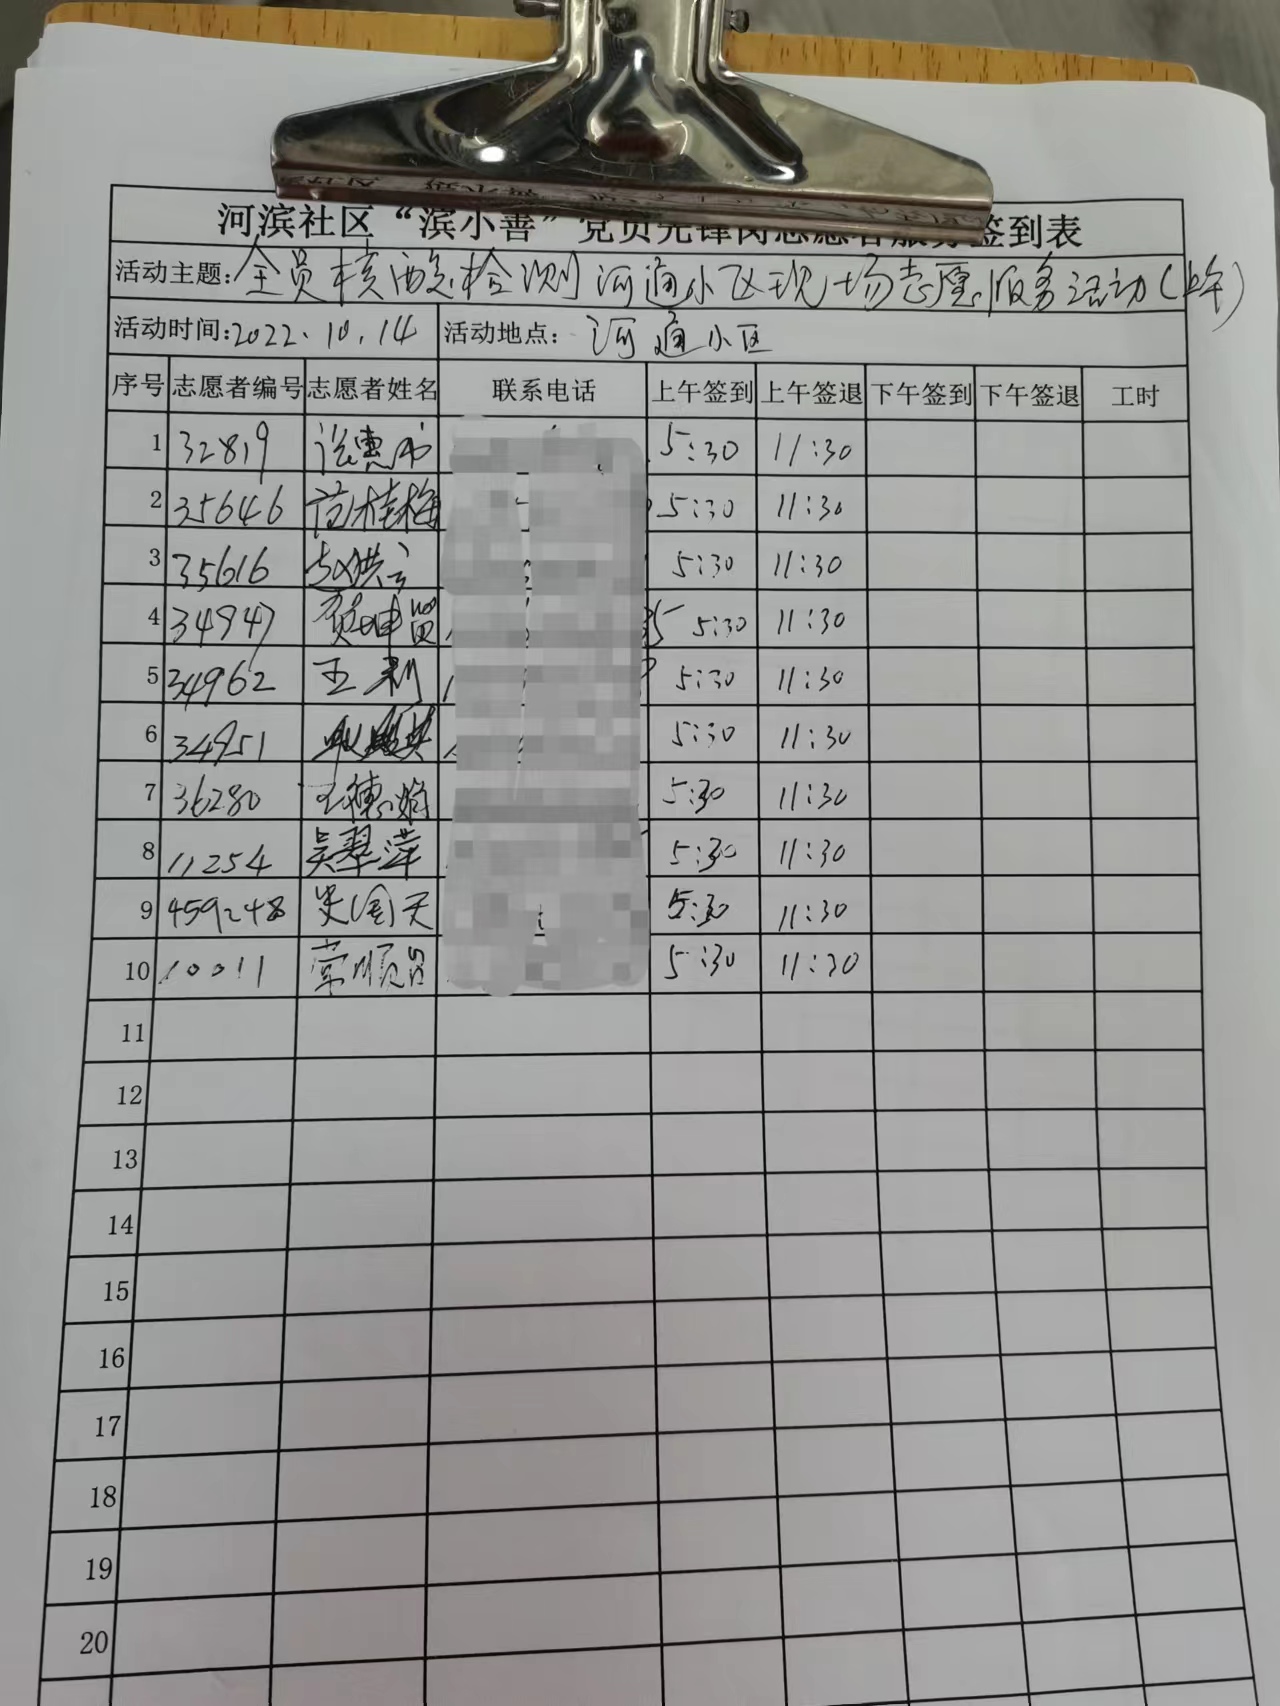 河滨社区“滨小善”党员先锋岗志愿者服务签到表
活动主题:全员核酸检测河通小区现场志愿服务活动(上午)
活动时间:2022.10.14 活动地点:河通小区
序号 志愿者编号 志愿者姓名 联系电话 上午签到 上午签退 下午签到 下午签退 工时
1 32819 5:30 11:30
2 35646 范桂梅 5:30 11:30
3 35616 5:30 11:30
4 34947 贺坤贤 5:30 11:30
5 34962 王利 5:30 11:30
6 34951 5:30 11:30
7 36280 王德娟 5:30 11:30
8 11254 吴翠萍 5:30 11:30
9 459248 史国天 5:30 11:30
10 10011 常顺昌 5:30 11:30
11
12
13
14
15
16
17
18
19
20